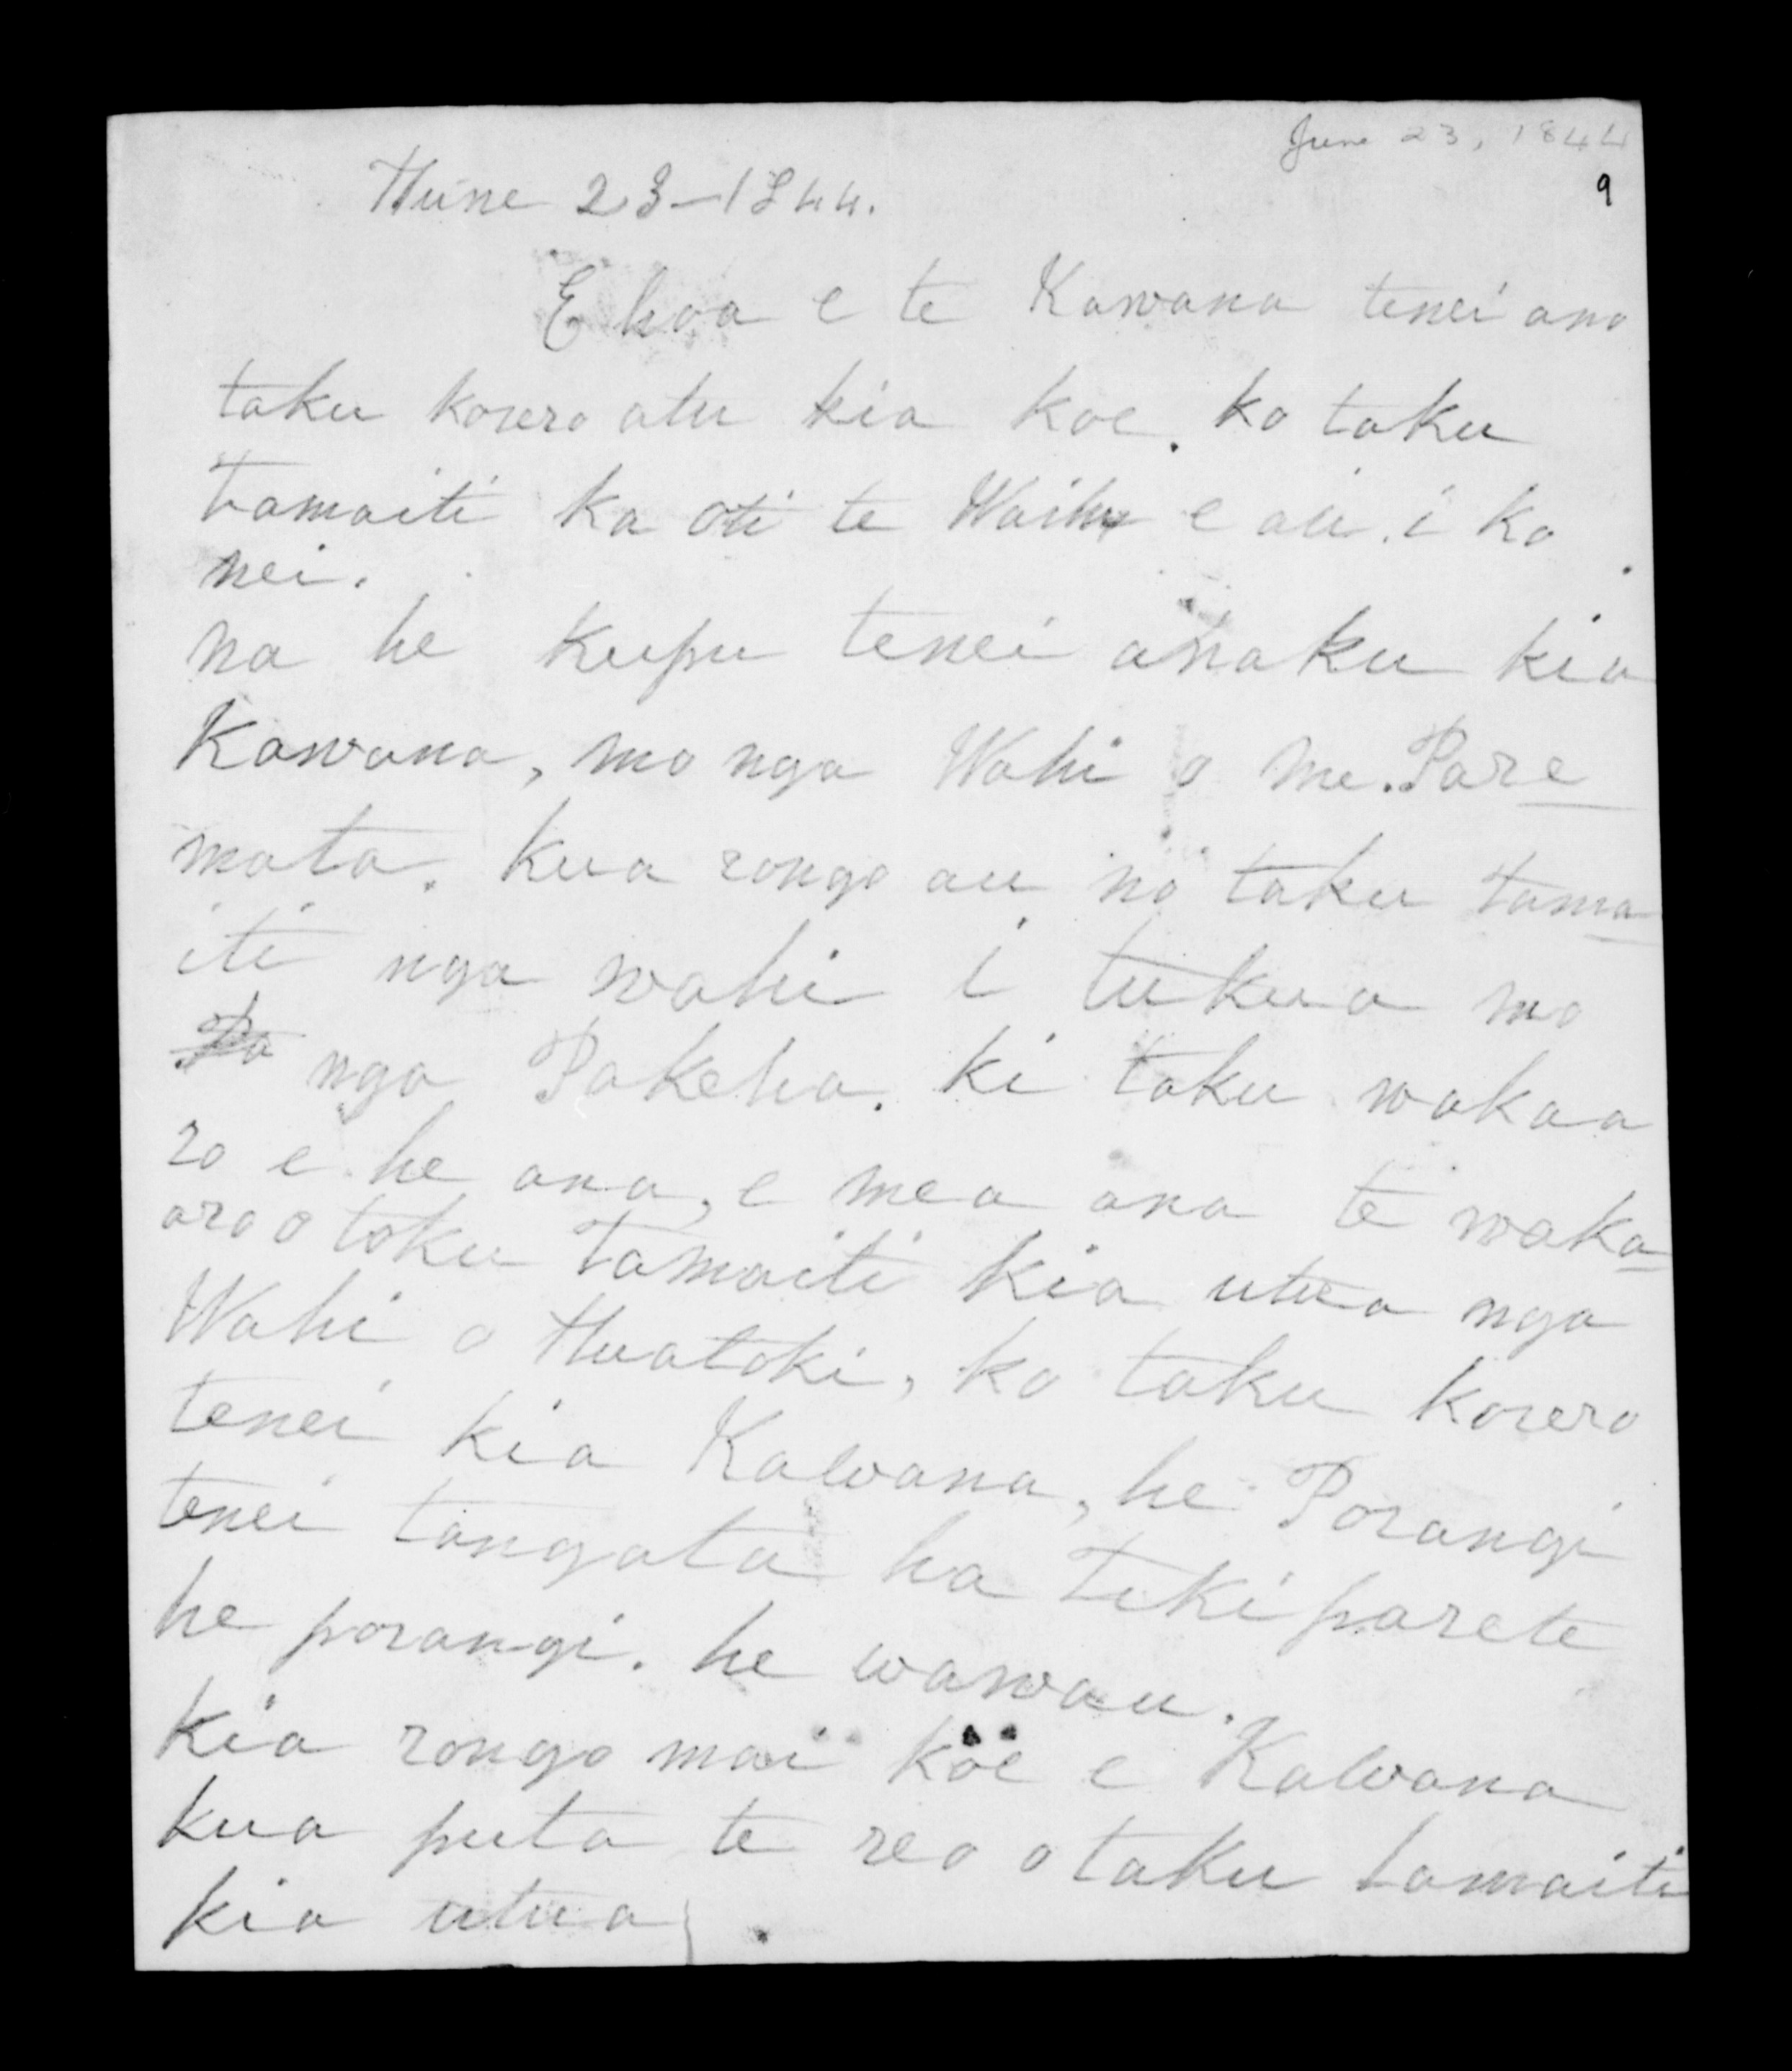 June 23, 1844
9
Hune 23-1844.
E hoa e te Kawana tenei ano
taku korero atu kia koe. ko taku
tamaiti ka oti te Waihu e au. i ko
nei.
na he kupu tenei anaku kia
Kawana, mo nga Wahi o me. Pare
mata. kua rongo au no taku tama
iti nga wahi i tukua mo
nga Pakeha. ki taku wakaa
ro e he ana, e mea ana te waka
aro o toku tamaiti kia utua nga
Wahi o Huatoki, ko taku korero
tenei kia Kawana, he Porangi
tenei tangata ha Tiki parete
he porangi. he wawau.
Kia rongo mai koe e Kawana
kua puta te reo o taku tamaiti
kia utua.